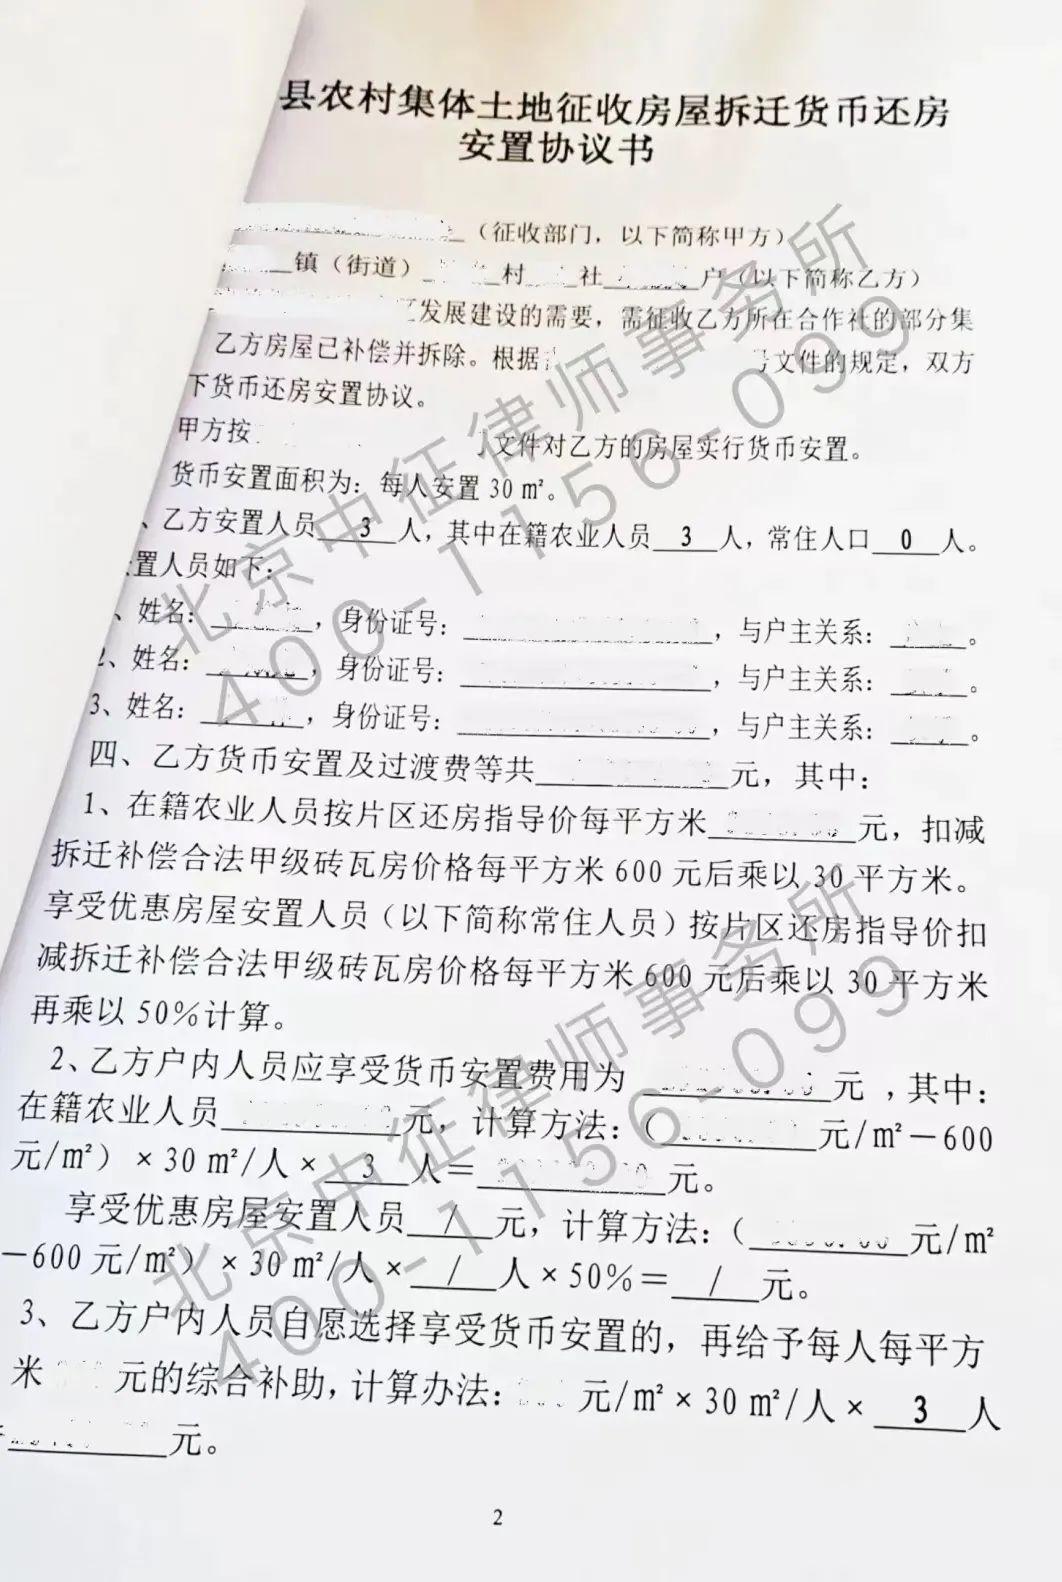 县农村集体土地征收房屋拆迁货币还房
安置协议书
（征收部门，以下简称甲方）
镇（街道） 村 社 户（以下简称乙方）
发展建设的需要，需征收乙方所在合作社的部分集
乙方房屋已补偿并拆除。根据 号文件的规定，双方
下货币还房安置协议。
甲方按 文件对乙方的房屋实行货币安置。
货币安置面积为：每人安置30㎡。
、乙方安置人员 3 人，其中在籍农业人员 3 人，常住人口 0 人。
置人员如下：
、姓名： ，身份证号： ，与户主关系： 。
2、姓名： ，身份证号： ，与户主关系： 。
3、姓名： ，身份证号： ，与户主关系： 。
四、乙方货币安置及过渡费等共 元，其中：
1、在籍农业人员按片区还房指导价每平方米 元，扣减
拆迁补偿合法甲级砖瓦房价格每平方米600元后乘以30平方米。
享受优惠房屋安置人员（以下简称常住人员）按片区还房指导价扣
减拆迁补偿合法甲级砖瓦房价格每平方米600元后乘以30平方米
再乘以50%计算。
2、乙方户内人员应享受货币安置费用为 元，其中：
在籍农业人员 元，计算方法：（ 元/㎡－600
元/㎡）×30㎡/人× 3 人＝ 元。
享受优惠房屋安置人员 / 元，计算方法：（ 元/㎡
－600元/㎡）×30㎡/人× / 人×50%＝ / 元。
3、乙方户内人员自愿选择享受货币安置的，再给予每人每平方
米 元的综合补助，计算办法： 元/㎡×30㎡/人× 3 人
＝ 元。
2
北京中征律师事务所
400-1156-099
北京中征律师事务所
400-1156-099